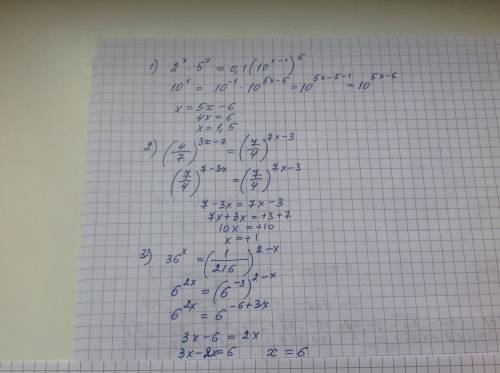 1) 2^x · 5^x = 0,1(10^(x-1))^5
10^x = 10^(-1) · 10^(5x-5) = 10^(5x-5-1) = 10^(5x-6)
x = 5x - 6
4x = 6
x = 1,5
2) (4/7)^(3x-7) = (7/4)^(7x-3)
(7/4)^(7-3x) = (7/4)^(7x-3)
7 - 3x = 7x - 3
7x + 3x = +3 + 7
10x = +10
x = +1
3) 36^x = (1/216)^(2-x)
6^(2x) = (6^(-3))^(2-x)
6^(2x) = 6^(-6+3x)
3x - 6 = 2x
3x - 2x = 6 x = 6